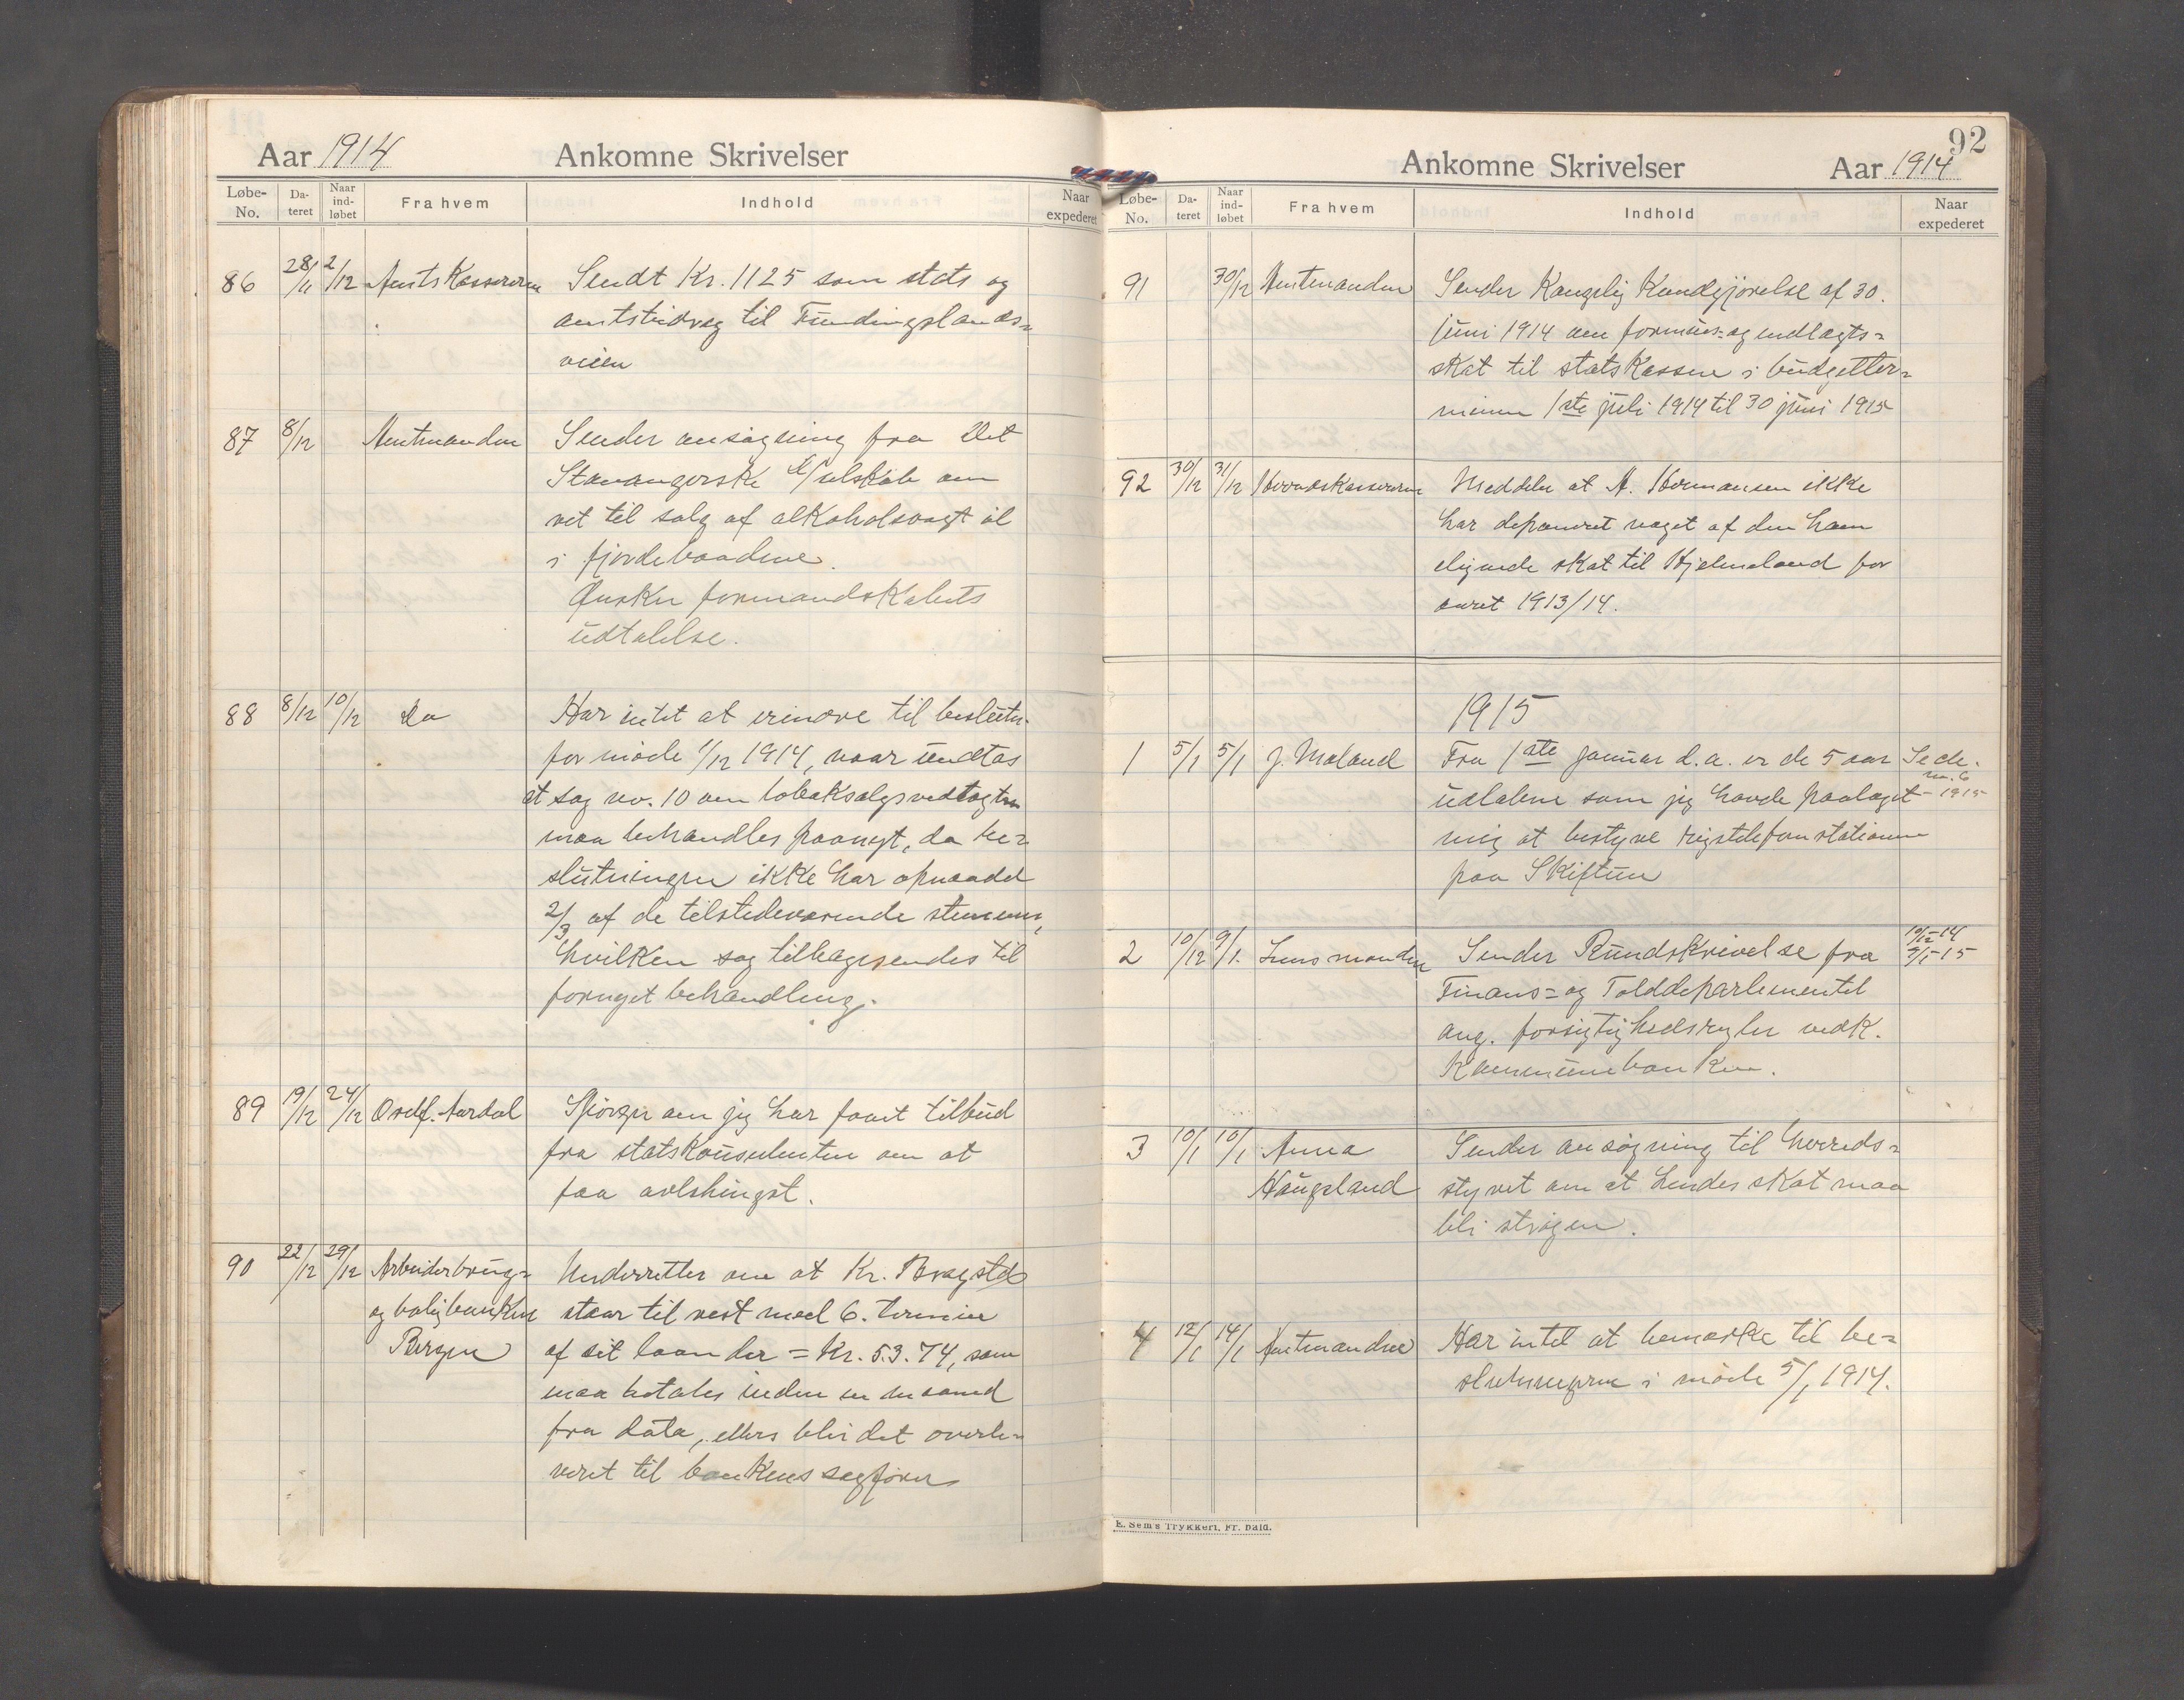 Aar 1914 Ankomne Skrivelser
Løbe-No. Da-teret Naar ind-løbet Fra hvem Indhold Naar expederet
86 28/11 2/12 Amtskassereren Sendt Kr. 1125 som stats og
amtstidrag til Fundingslands-
veien
87 8/12 Amtmanden Sender ansøgning fra Det
Stavangerske D/selskab om
ret til salg af alkoholsvagt øl
i fjordebaadene.
Ønsker formandskabets
udtalelse.
88 8/12 10/12 Do Har intet at erindre til beslutn.
for møde 1/12 1914, naar undtas
at sag no. 10 om tobaksalgsvedtagten
maa behandles paanyt, da be-
slutningen ikke har opnaadd
2/3 af de tilstedeværende stemmer,
hvilken sag tilbagesendes til
fornyet behandling.
89 19/12 24/12 Ordf. Aardal Spørger om jeg har faaet tilbud
fra statskonsulenten om at
faa avlshingst.
90 22/12 29/12 Arbeiderbrug- Underretter om at Kr. Bragstad
og boligbanken staar til rest med 6. termin
Bergen af sit laan der = Kr. 53.74, som
maa betales inden en maaned
fra data, ellers blir det overle-
veret til bankens sagfører
92
Ankomne Skrivelser Aar 1914
Løbe-No. Da-teret Naar ind-løbet Fra hvem Indhold Naar expederet
91 30/12 Amtmanden Sender Kongelig Kundgjørelse af 30.
juni 1914 om formues- og indtægts-
skat til statskassen i budgetter-
minen 1ste juli 1914 til 30 juni 1915
92 30/12 31/12 Herredskassereren Meddeler at A. Hermansen ikke
har deponeret noget af den ham
elignede skat til Hjelmeland for
aaret 1913/14.
1915
1 5/1 5/1 J. Maland Fra 1ste januar d.a. er de 5 aar Se de.
no. 6
udløbne som jeg havde paalaget - 1915
mig at bestyre rigstelefonstationen
paa Skiftun
2 10/12 9/1. Lensmanden Sender Rundskrivelse fra 10/12-14
9/1-15
Finans- og Tolddepartementet
ang. forsigtighedsregler vedk.
Kommunebanken.
3 10/1 10/1 Anna Sender ansøgning til herreds-
Haugsland styret om at hendes skat maa
bli strøgen.
4 12/1 14/1 Amtmanden Har intet at bemærke til be-
slutningerne i møde 5/1 1914.
E. Sem's Trykkeri, Fr. hald.